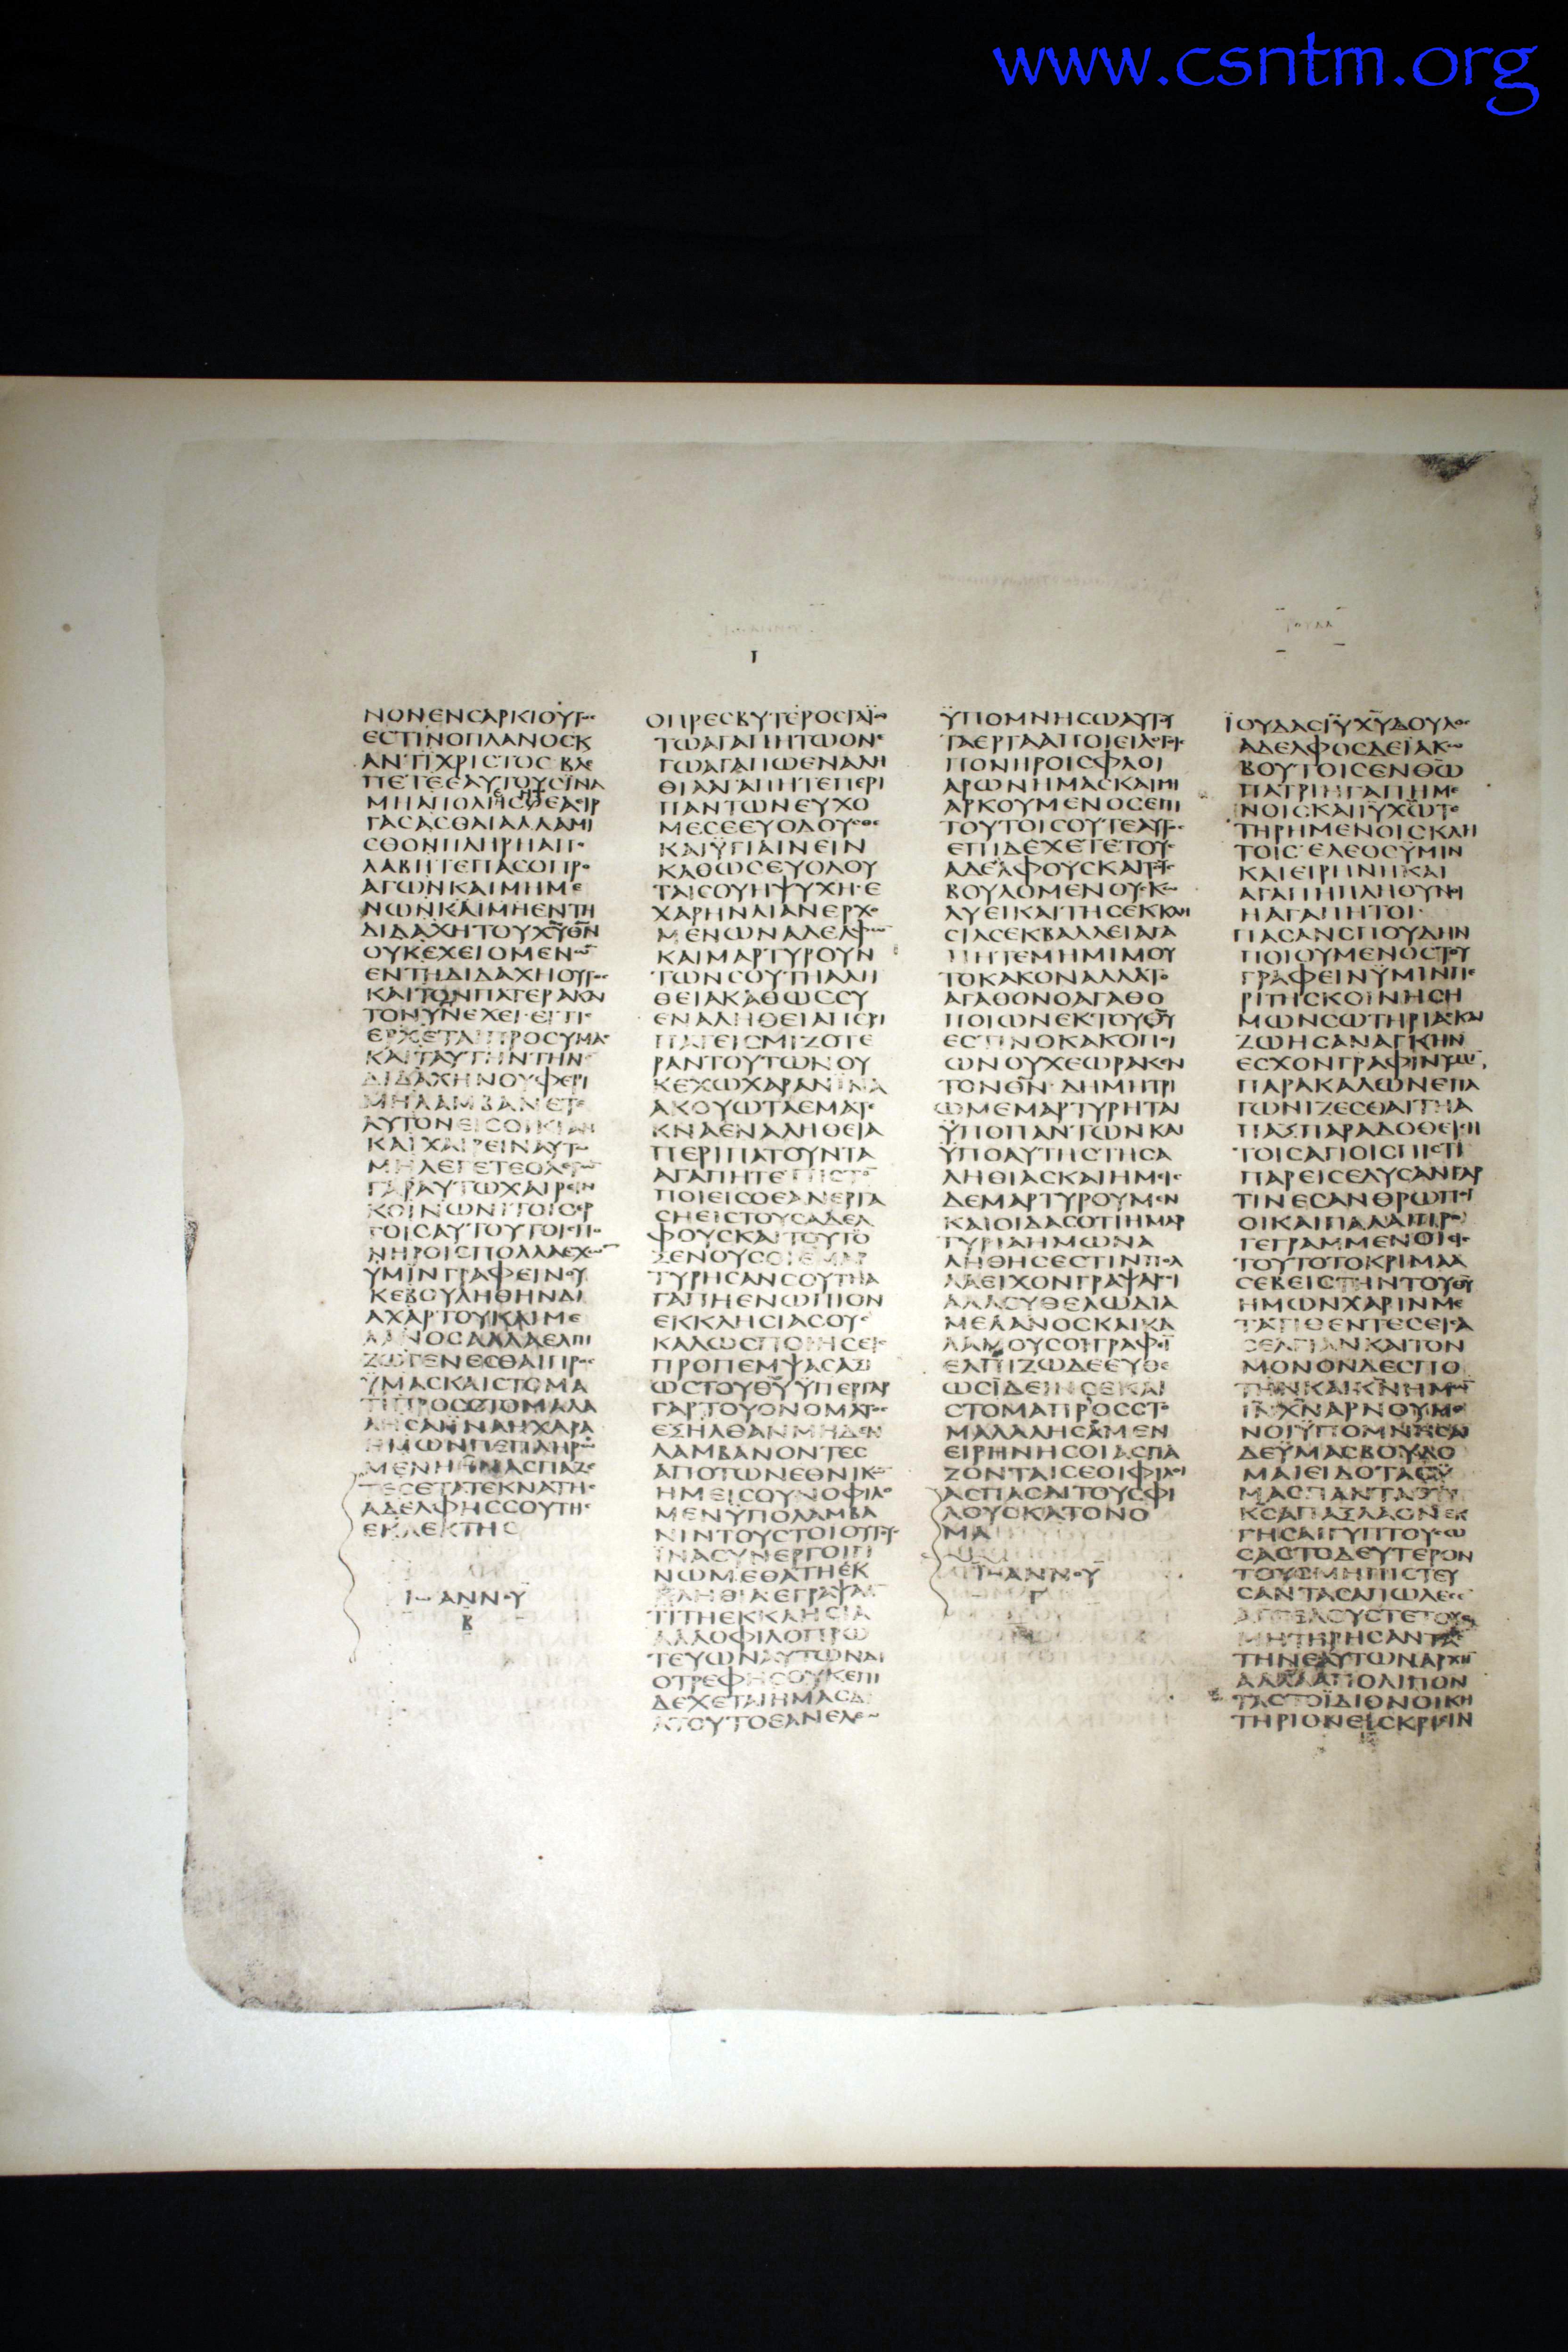 www.csntm.org
ΝΟΝΕΝϹΑΡΚΙΟΥΤ
ΕϹΤΙΝΟΠΛΑΝΟϹΚ
ΑΝΤΙΧΡΙϹΤΟϹ ΒΛΕ
ΠΕΤΕΕΑΥΤΟΥϹΪΝΑ
ΓΑϹΑϹΘΑΙΑΛΛΑΜΙ
ϹΘΟΝΠΛΗΡΗΑΠΟ
ΛΑΒΗΤΕΠΑϹΟΠΡΟ
ΑΓΩΝΚΑΙΜΗΜΕ
ΝΩΝΚΑΙΜΗΕΝΤΗ
ΔΙΔΑΧΗΤΟΥΧΥΘΝ
ΟΥΚΕΧΕΙΟΜΕΝΩ
ΕΝΤΗΔΙΔΑΧΗΟΥΤΟ
ΚΑΙΤΟΝΠΑΤΕΡΑΚΑΙ
ΤΟΝΥΝΕΧΕΙ·ΕΙΤΙ
ΕΡΧΕΤΑΙΠΡΟϹΥΜΑ
ΚΑΙΤΑΥΤΗΝΤΗΝ
ΔΙΔΑΧΗΝΟΥΦΕΡΙ
ΜΗΛΑΜΒΑΝΕΤΕ
ΑΥΤΟΝΕΙϹΟΙΚΙΑΝ
ΚΑΙΧΑΙΡΕΙΝΑΥΤΩ
ΜΗΛΕΓΕΤΕΟΛΕΓΩ
ΓΑΡΑΥΤΩΧΑΙΡΕΙΝ
ΚΟΙΝΩΝΙΤΟΙϹΕΡ
ΓΟΙϹΑΥΤΟΥΤΟΙϹΠΟ
ΝΗΡΟΙϹΠΟΛΛΑΕΧΩ
ΥΜΙΝΓΡΑΦΕΙΝΟΥ
ΚΕΒΟΥΛΗΘΗΝΔΙ
ΑΧΑΡΤΟΥΚΑΙΜΕ
ΛΑΝΟϹΑΛΛΑΕΛΠΙ
ΖΩΓΕΝΕϹΘΑΙΠΡΟϹ
ΫΜΑϹΚΑΙϹΤΟΜΑ
ΤΙΠΡΟϹϹΤΟΜΑΛΑ
ΛΗϹΑΙΪΝΑΗΧΑΡΑ
ΗΜΩΝΠΕΠΛΗΡΩ
ΑΔΕΛΦΗϹϹΟΥΤΗϹ
ΕΚΛΕΚΤΗϹ
ΙΩΑΝΝΟΥ
Β
ΟΠΡΕϹΒΥΤΕΡΟϹΓΑΪΩ
ΤΩΑΓΑΠΗΤΩΟΝΕ
ΓΩΑΓΑΠΩΕΝΑΛΗ
ΘΙΑΑΓΑΠΗΤΕΠΕΡΙ
ΠΑΝΤΩΝΕΥΧΟ
ΜΕϹΕΕΥΟΔΟΥϹΘΕ
ΚΑΙΫΓΙΑΙΝΕΙΝ
ΚΑΘΩϹΕΥΟΔΟΥ
ΤΑΙϹΟΥΗΨΥΧΗ·Ε
ΧΑΡΗΝΛΙΑΝΕΡΧΟ
ΜΕΝΩΝΑΔΕΛΦΩ
ΚΑΙΜΑΡΤΥΡΟΥΝ
ΤΩΝϹΟΥΤΗΑΛΗ
ΘΕΙΑΚΑΘΩϹϹΥ
ΕΝΑΛΗΘΕΙΑΠΕΡΙ
ΠΑΤΕΙϹΜΙΖΟΤΕ
ΡΑΝΤΟΥΤΩΝΟΥ
ΚΕΧΩΧΑΡΑΝΙΝΑ
ΑΚΟΥΩΤΑΕΜΑΤΕ
ΚΝΑΕΝΑΛΗΘΕΙΑ
ΠΕΡΙΠΑΤΟΥΝΤΑ
ΑΓΑΠΗΤΕΠΙϹΤΟ
ΠΟΙΕΙϹΟΕΑΝΕΡΓΑ
ϹΗΕΙϹΤΟΥϹΑΔΕΛ
ΦΟΥϹΚΑΙΤΟΥΤΟ
ΞΕΝΟΥϹΟΙΕΜΑΡ
ΤΥΡΗϹΑΝϹΟΥΤΗΑ
ΓΑΠΗΕΝΩΠΙΟΝ
ΕΚΚΛΗϹΙΑϹΟΥϹ
ΚΑΛΩϹΠΟΙΗϹΕΙϹ
ΠΡΟΠΕΜΨΑϹΑΞΙ
ΩϹΤΟΥΘΥΫΠΕΡΓΑΡ
ΓΑΡΤΟΥΟΝΟΜΑΤΟϹ
ΕΞΗΛΘΑΝΜΗΔΕΝ
ΛΑΜΒΑΝΟΝΤΕϹ
ΑΠΟΤΩΝΕΘΝΙΚΩ
ΗΜΕΙϹΟΥΝΟΦΙΛΟ
ΜΕΝΫΠΟΛΑΜΒΑ
ΝΙΝΤΟΥϹΤΟΙΟΥΤΟΥϹ
ΪΝΑϹΥΝΕΡΓΟΙΓΙ
ΝΩΜΕΘΑΤΗΕΚ
ΚΛΗΘΙΑΕΓΡΑΨΑϹ
ΤΙΤΗΕΚΚΛΗϹΙΑ
ΑΛΛΟΦΙΛΟΠΡΩ
ΤΕΥΩΝΑΥΤΩΝΔΙ
ΟΤΡΕΦΗϹΟΥΚΕΠΙ
ΔΕΧΕΤΑΙΗΜΑϹΔΙ
ΑΤΟΥΤΟΕΑΝΕΛΘΩ
ΫΠΟΜΝΗϹΩΑΥΤΟΥ
ΤΑΕΡΓΑΑΠΟΙΕΙΛΟΓΟΙϹ
ΠΟΝΗΡΟΙϹΦΛΟΙ
ΑΡΩΝΗΜΑϹΚΑΙΜΗ
ΑΡΚΟΥΜΕΝΟϹΕΠΙ
ΤΟΥΤΟΙϹΟΥΤΕΑΥΤΟϹ
ΕΠΙΔΕΧΕΤΕΤΟΥϹ
ΑΔΕΛΦΟΥϹΚΑΙΤΟΥϹ
ΒΟΥΛΟΜΕΝΟΥϹΚΩ
ΛΥΕΙΚΑΙΤΗϹΕΚΚΛΗ
ϹΙΑϹΕΚΒΑΛΛΕΙΑΓΑ
ΠΗΤΕΜΗΜΙΜΟΥ
ΤΟΚΑΚΟΝΑΛΛΑΤΟ
ΑΓΑΘΟΝΟΑΓΑΘΟ
ΠΟΙΩΝΕΚΤΟΥΘΥ
ΕϹΤΙΝΟΚΑΚΟΠΟΙ
ΩΝΟΥΧΕΩΡΑΚΕΝ
ΤΟΝΘΝ·ΔΗΜΗΤΡΙ
ΩΜΕΜΑΡΤΥΡΗΤΑΙ
ΫΠΟΠΑΝΤΩΝΚΑΙ
ΫΠΟΑΥΤΗϹΤΗϹΑ
ΛΗΘΙΑϹΚΑΙΗΜΕΙϹ
ΔΕΜΑΡΤΥΡΟΥΜΕΝ
ΚΑΙΟΙΔΑϹΟΤΙΗΜΑΡ
ΤΥΡΙΑΗΜΩΝΑ
ΛΗΘΗϹΕϹΤΙΝΠΟΛ
ΛΑΕΙΧΟΝΓΡΑΨΑΙϹΟΙ
ΑΛΛΟΥΘΕΛΩΔΙΑ
ΜΕΛΑΝΟϹΚΑΙΚΑ
ΛΑΜΟΥϹΟΙΓΡΑΦΪ
ΕΛΠΙΖΩΔΕΕΥΘΕ
ΩϹΪΔΕΙΝϹΕΚΑΙ
ϹΤΟΜΑΠΡΟϹϹΤΟ
ΜΑΛΑΛΗϹΑΜΕΝ
ΕΙΡΗΝΗϹΟΙΑϹΠΑ
ΖΟΝΤΑΙϹΕΟΙΦΙΛΟΙ
ΑϹΠΑϹΑΙΤΟΥϹΦΙ
ΛΟΥϹΚΑΤΟΝΟ
ΜΑ
ΙΩΑΝΝΟΥ
Γ
ΪΟΥΔΑϹΙΥΧΥΔΟΥΛΟϹ
ΑΔΕΛΦΟϹΔΕΪΑΚΩ
ΒΟΥΤΟΙϹΕΝΘΩ
ΠΑΤΡΙΗΓΑΠΗΜΕ
ΝΟΙϹΚΑΙΙΥΧΩΤΕ
ΤΗΡΗΜΕΝΟΙϹΚΛΗ
ΤΟΙϹ·ΕΛΕΟϹΥΜΙΝ
ΚΑΙΕΙΡΗΝΗΚΑΙ
ΑΓΑΠΗΠΛΗΘΥΝΘΙ
ΗΑΓΑΠΗΤΟΙ
ΠΑϹΑΝϹΠΟΥΔΗΝ
ΠΟΙΟΥΜΕΝΟϹΤΟΥ
ΓΡΑΦΕΙΝΫΜΙΝΠΕ
ΡΙΤΗϹΚΟΙΝΗϹΗ
ΜΩΝϹΩΤΗΡΙΑϹΚΑΙ
ΖΩΗϹΑΝΑΓΚΗΝ
ΕϹΧΟΝΓΡΑΨΙΝΫΜΙ
ΠΑΡΑΚΑΛΩΝΕΠΑ
ΓΩΝΙΖΕϹΘΑΙΤΗΑ
ΠΑΞΠΑΡΑΔΟΘΕΙϹΗ
ΤΟΙϹΑΓΙΟΙϹΠΙϹΤΙ
ΠΑΡΕΙϹΕΔΥϹΑΝΓΑΡ
ΤΙΝΕϹΑΝΘΡΩΠΟΙ
ΟΙΚΑΙΠΑΛΑΙΠΡΟ
ΓΕΓΡΑΜΜΕΝΟΙΕΙϹ
ΤΟΥΤΟΤΟΚΡΙΜΑΑ
ϹΕΒΕΙϹΤΗΝΤΟΥΘΥ
ΗΜΩΝΧΑΡΙΝΜΕ
ΤΑΤΙΘΕΝΤΕϹΕΙϹΑ
ϹΕΛΓΙΑΝΚΑΙΤΟΝ
ΜΟΝΟΝΔΕϹΠΟ
ΤΗΝΚΑΙΚΝΗΜΩ
ΙΝΧΝΑΡΝΟΥΜΕ
ΝΟΙΫΠΟΜΝΗϹΑΙ
ΔΕΫΜΑϹΒΟΥΛΟ
ΜΑΙΕΙΔΟΤΑϹΫ
ΜΑϹΠΑΝΤΑΟΤΙ
ΚϹΑΠΑΞΛΑΟΝΕΚ
ΓΗϹΑΙΓΥΠΤΟΥϹΩ
ϹΑϹΤΟΔΕΥΤΕΡΟΝ
ΤΟΥϹΜΗΠΙϹΤΕΥ
ϹΑΝΤΑϹΑΠΩΛΕϹΕ
ΑΓΓΕΛΟΥϹΤΕΤΟΥϹ
ΜΗΤΗΡΗϹΑΝΤΑϹ
ΤΗΝΕΑΥΤΩΝΑΡΧΗ
ΑΛΛΑΑΠΟΛΙΠΟΝ
ΤΑϹΤΟΪΔΙΟΝΟΙΚΗ
ΤΗΡΙΟΝΕΙϹΚΡΙϹΙΝ